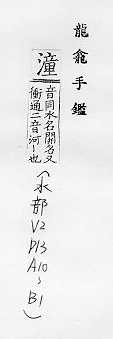 龍龕手鑑
潼
音同水名關名又
衝通二音河〡也
(水部V2
P13
A10~
B1)